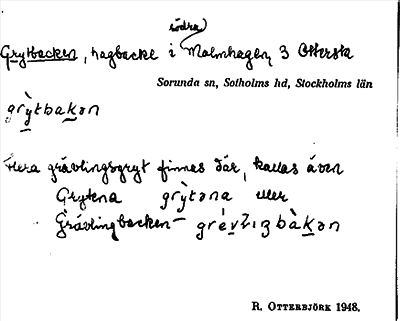 södra
Grytbacken, hagbacke i Malmhagen, 3 Ottersta
Sorunda sn, Sotholms hd, Stockholms län
grỳtbakən
Flera grävlingsgryt finnes där, kallas även
Grytena grỳtəna eller
Grävlingbacken
R. OTTERBJÖRK 1948.